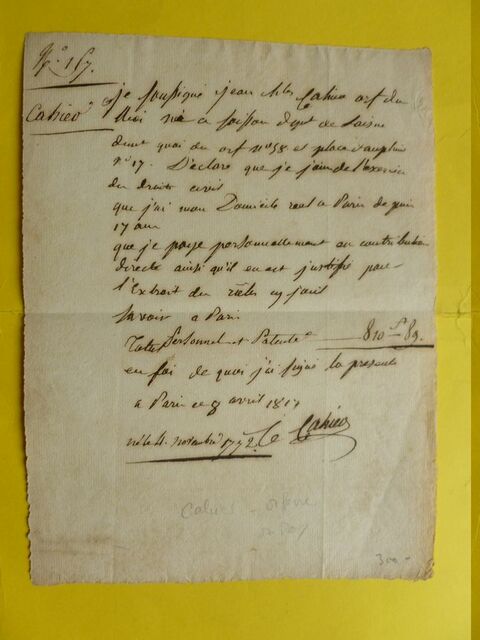 N.° 167.
Cahier
je soussigné jean Chles Cahier orf. du
Roi né a soisson dept de Laisne
demt quai des orf. n° 58 et place dauphine
n° 17. Déclare que je jouis de l'exercice
des droits civils
que j'ai mon Domicile reel a Paris depuis
17 ans
que je paye personnellement en contribution
directe ainsi qu'il en est justifié par
l'Extrait des rôles cy joint
savoir a Paris
Personnel et Patente 810 f 89.
en foi de quoi j'ai signé la présente
a Paris ce 8 avril 1817
né le 4 novembre 1772 Cahier
Cahier - orfèvre
du Roy
300 -